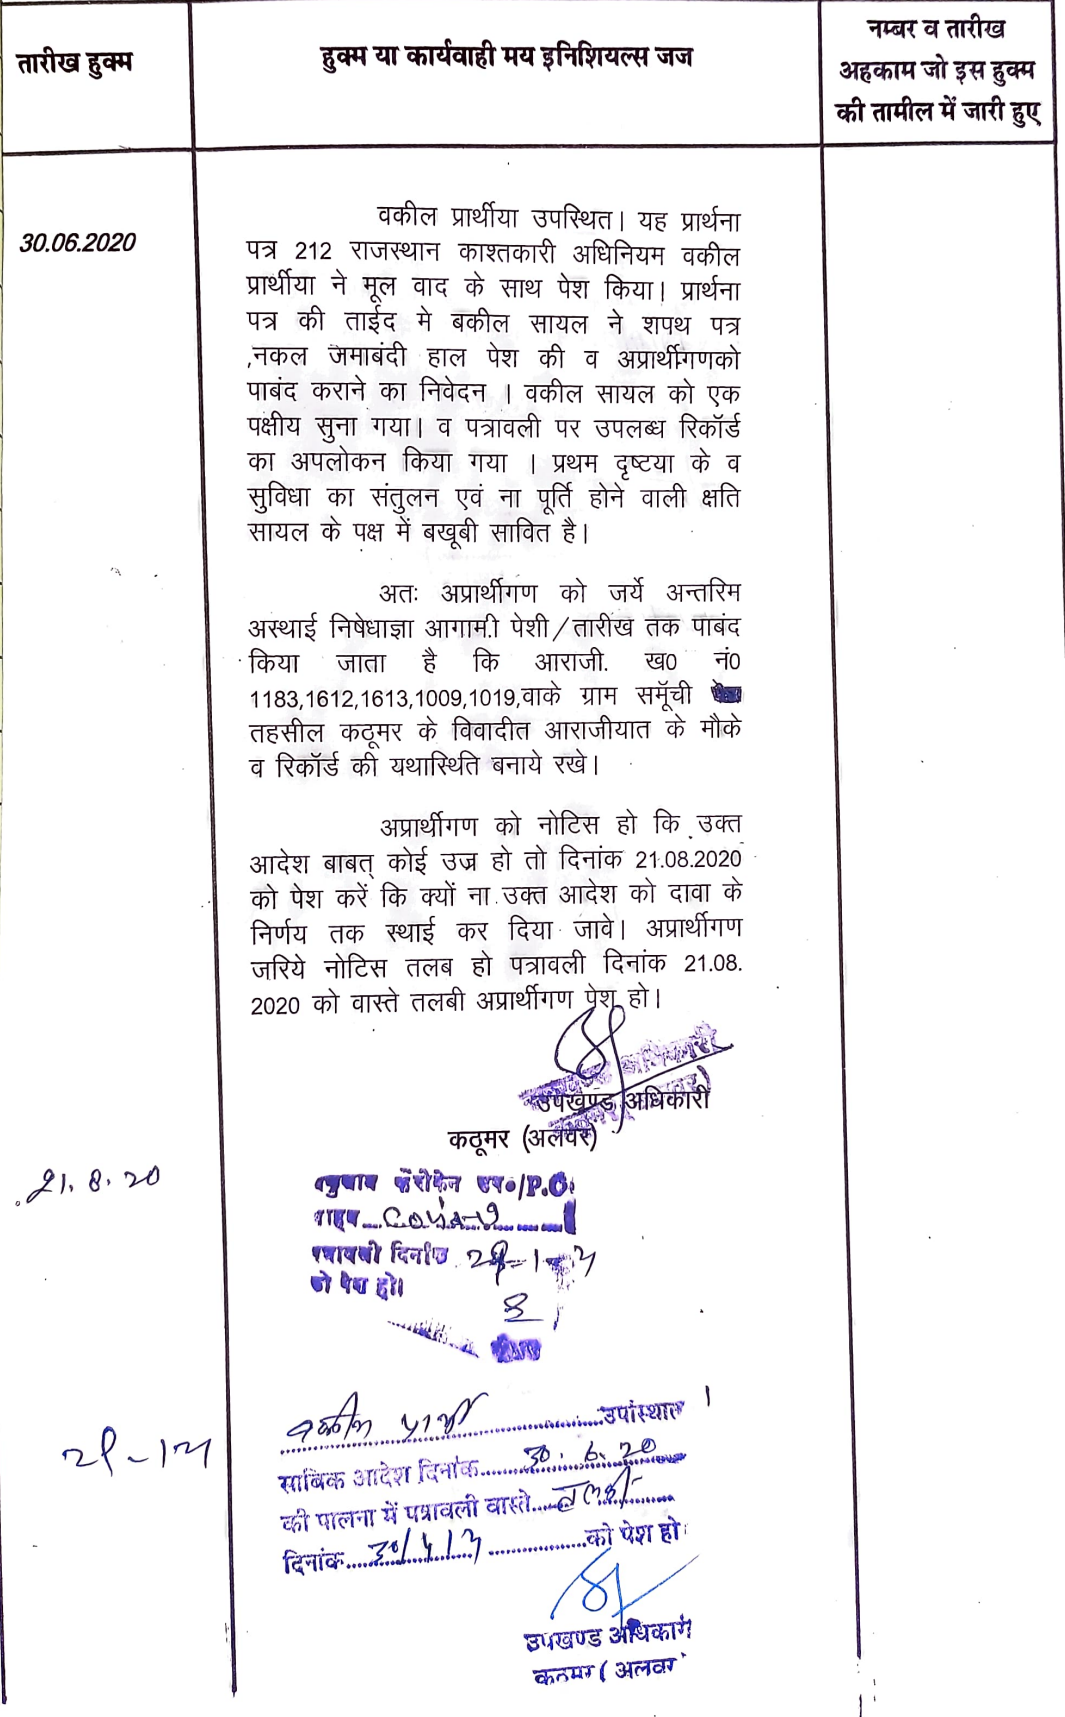 तारीख हुक्म
हुक्म या कार्यवाही मय इनिशियल्स जज
नम्बर व तारीख
अहकाम जो इस हुक्म
की तामील में जारी हुए
30.06.2020
वकील प्रार्थीया उपस्थित। यह प्रार्थना
पत्र 212 राजस्थान काश्तकारी अधिनियम वकील
प्रार्थीया ने मूल वाद के साथ पेश किया। प्रार्थना
पत्र की ताईद मे बकील सायल ने शपथ पत्र
,नकल जमाबंदी हाल पेश की व अप्रार्थीगणको
पाबंद कराने का निवेदन । वकील सायल को एक
पक्षीय सुना गया। व पत्रावली पर उपलब्ध रिकॉर्ड
का अपलोकन किया गया । प्रथम दृष्टया के व
सुविधा का संतुलन एवं ना पूर्ति होने वाली क्षति
सायल के पक्ष में बखूबी सावित है।
अतः अप्रार्थीगण को जर्ये अन्तरिम
अस्थाई निषेधाज्ञा आगामी पेशी/तारीख तक पाबंद
किया जाता है कि आराजी. ख0 नं0
1183,1612,1613,1009,1019,वाके ग्राम समूँची
तहसील कठूमर के विवादीत आराजीयात के मौके
व रिकॉर्ड की यथास्थिति बनाये रखे।
अप्रार्थीगण को नोटिस हो कि उक्त
आदेश बाबत् कोई उज्र हो तो दिनांक 21.08.2020
को पेश करें कि क्यों ना उक्त आदेश को दावा के
निर्णय तक स्थाई कर दिया जावे। अप्रार्थीगण
जरिये नोटिस तलब हो पत्रावली दिनांक 21.08.
2020 को वास्ते तलबी अप्रार्थीगण पेश हो।
उपखण्ड अधिकारी
कठूमर (अलवर)
21.8.20
P.O.
पत्रावली दिनांक
को पेश हो।
वकील प्रार्थी उपस्थित ।
साबिक आदेश दिनांक 30.6.20
की पालना में पत्रावली वास्ते तलबी
दिनांक को पेश हो
उपखण्ड अधिकारी
कठूमर (अलवर